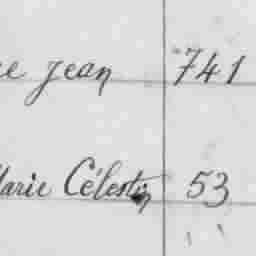 ce Jean 741
Marie Célestin 53